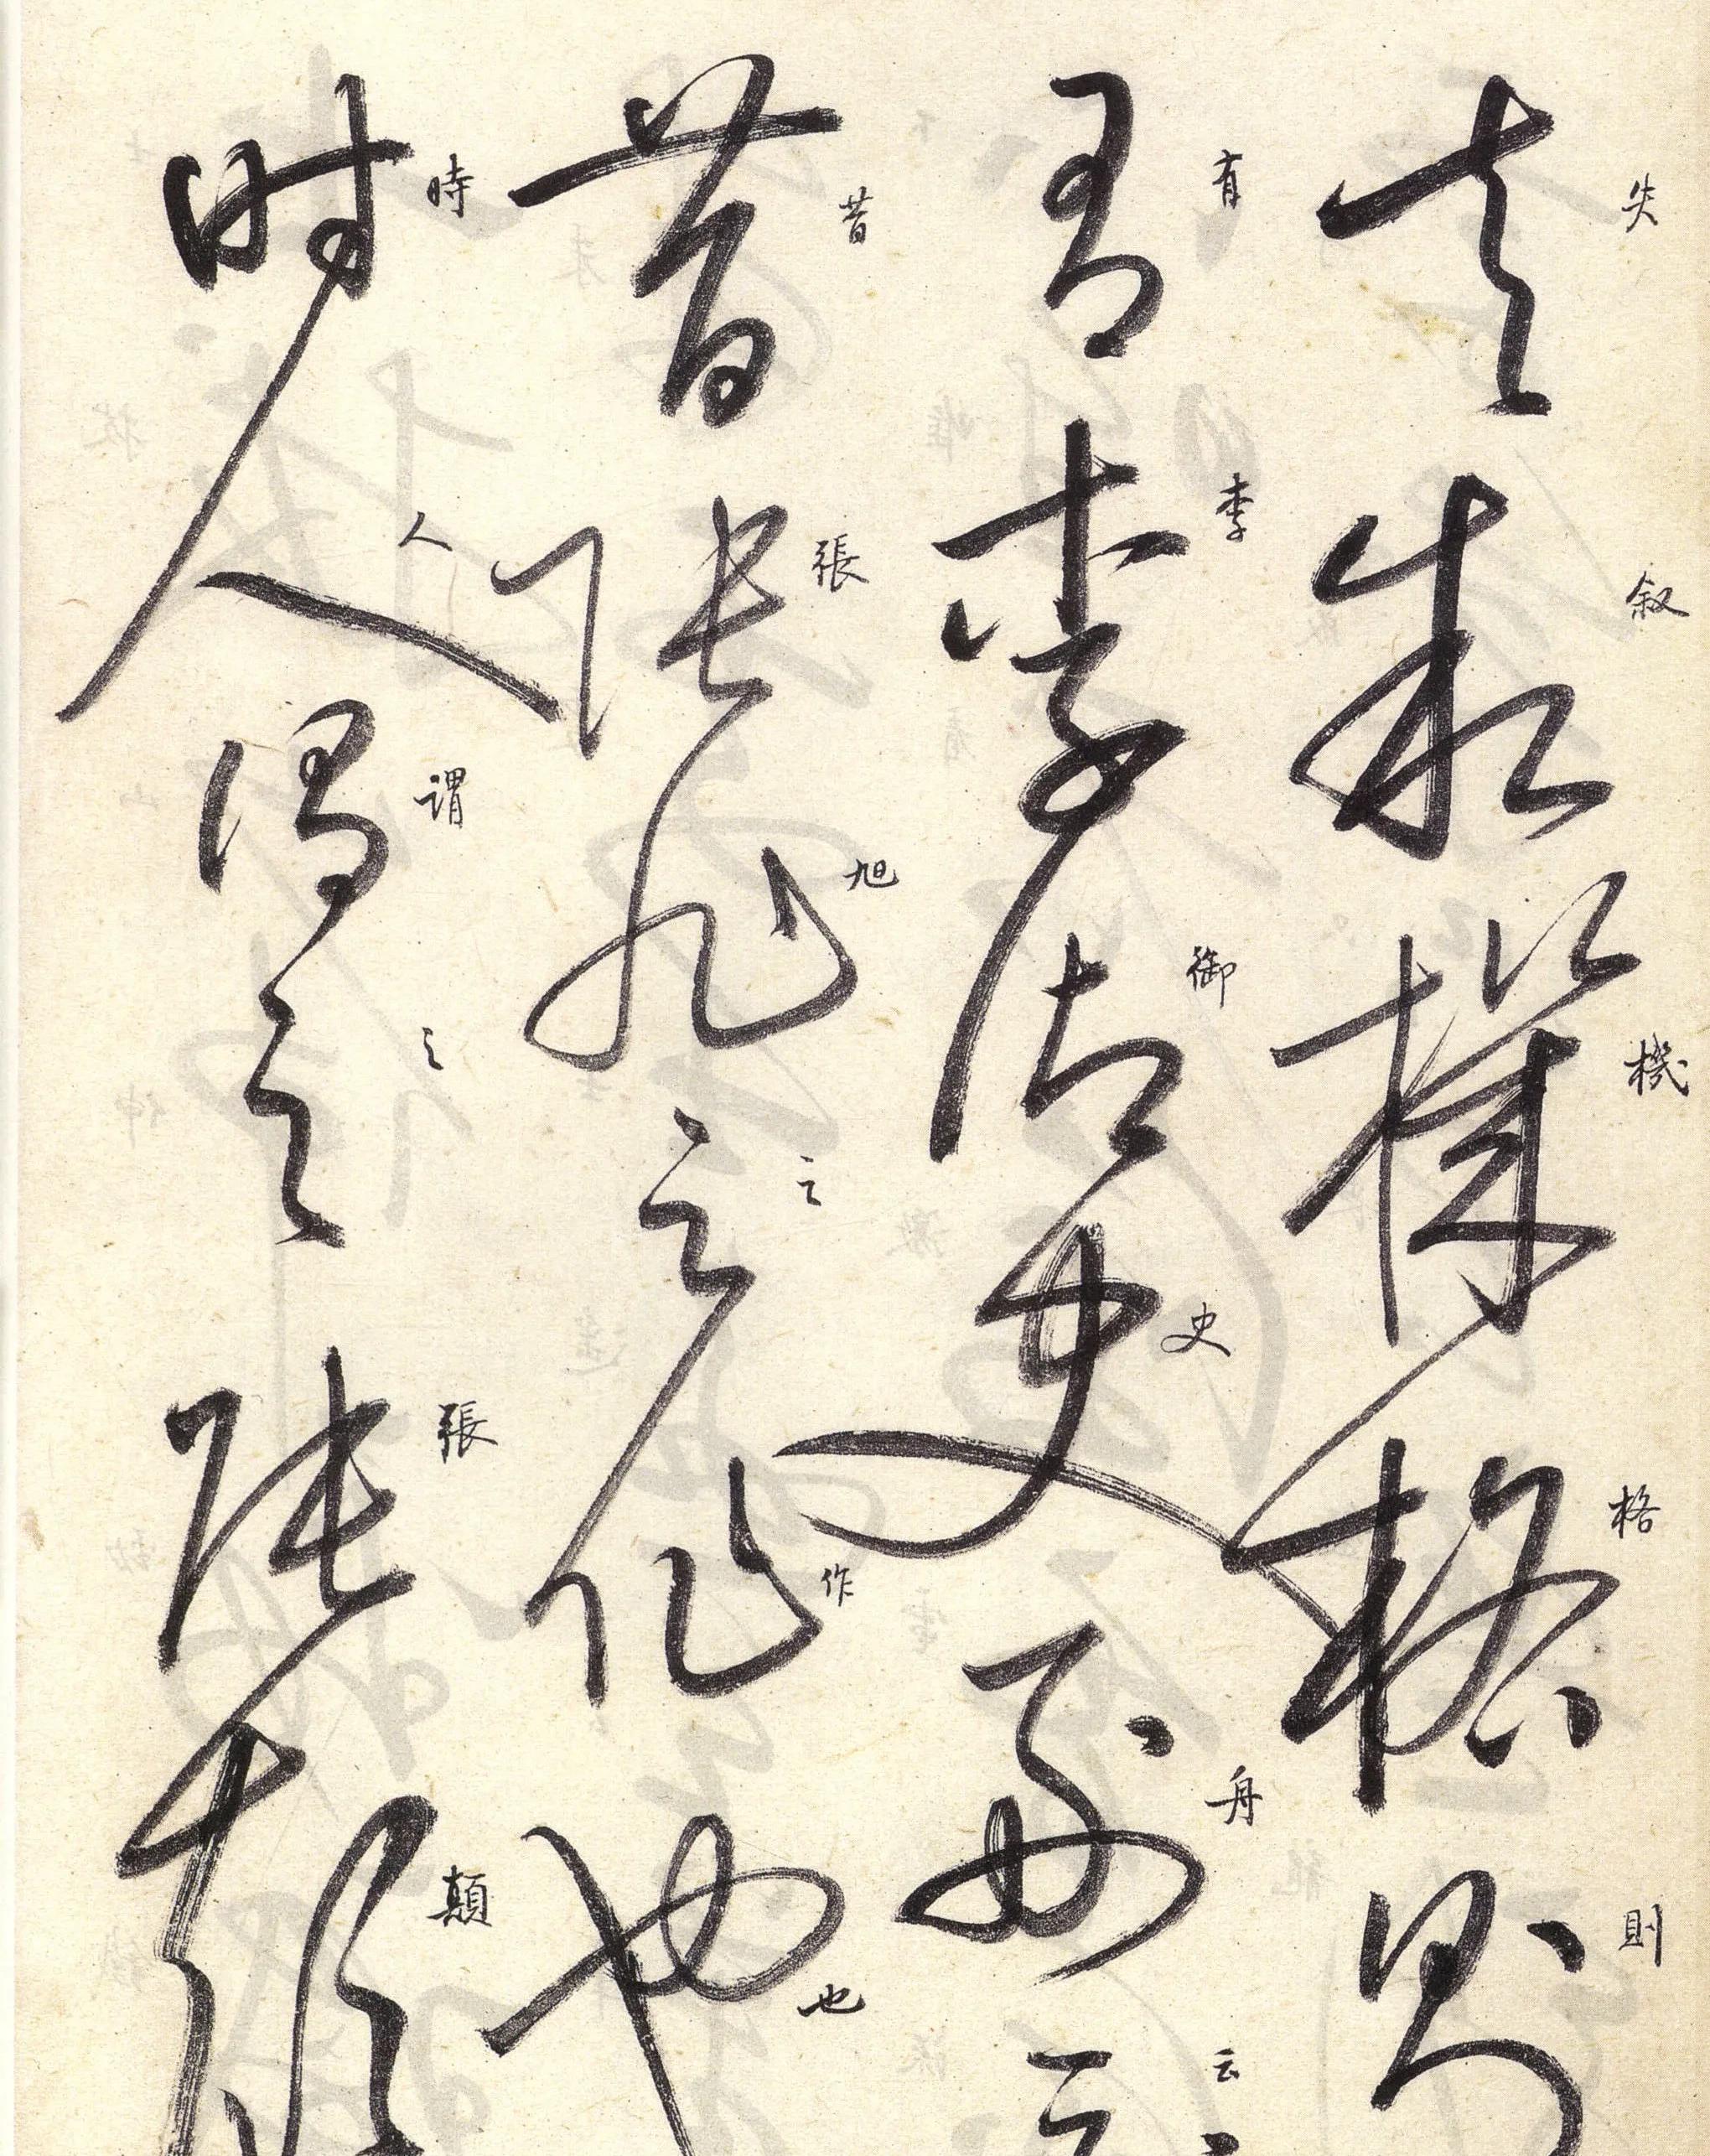 走叙機格則
有李御史舟云
昔張旭之作也
時人謂之張顛